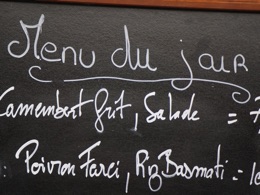 Menu du jour
Camembert frit, Salade = 7
Poivron Farci, Riz Basmati = 1